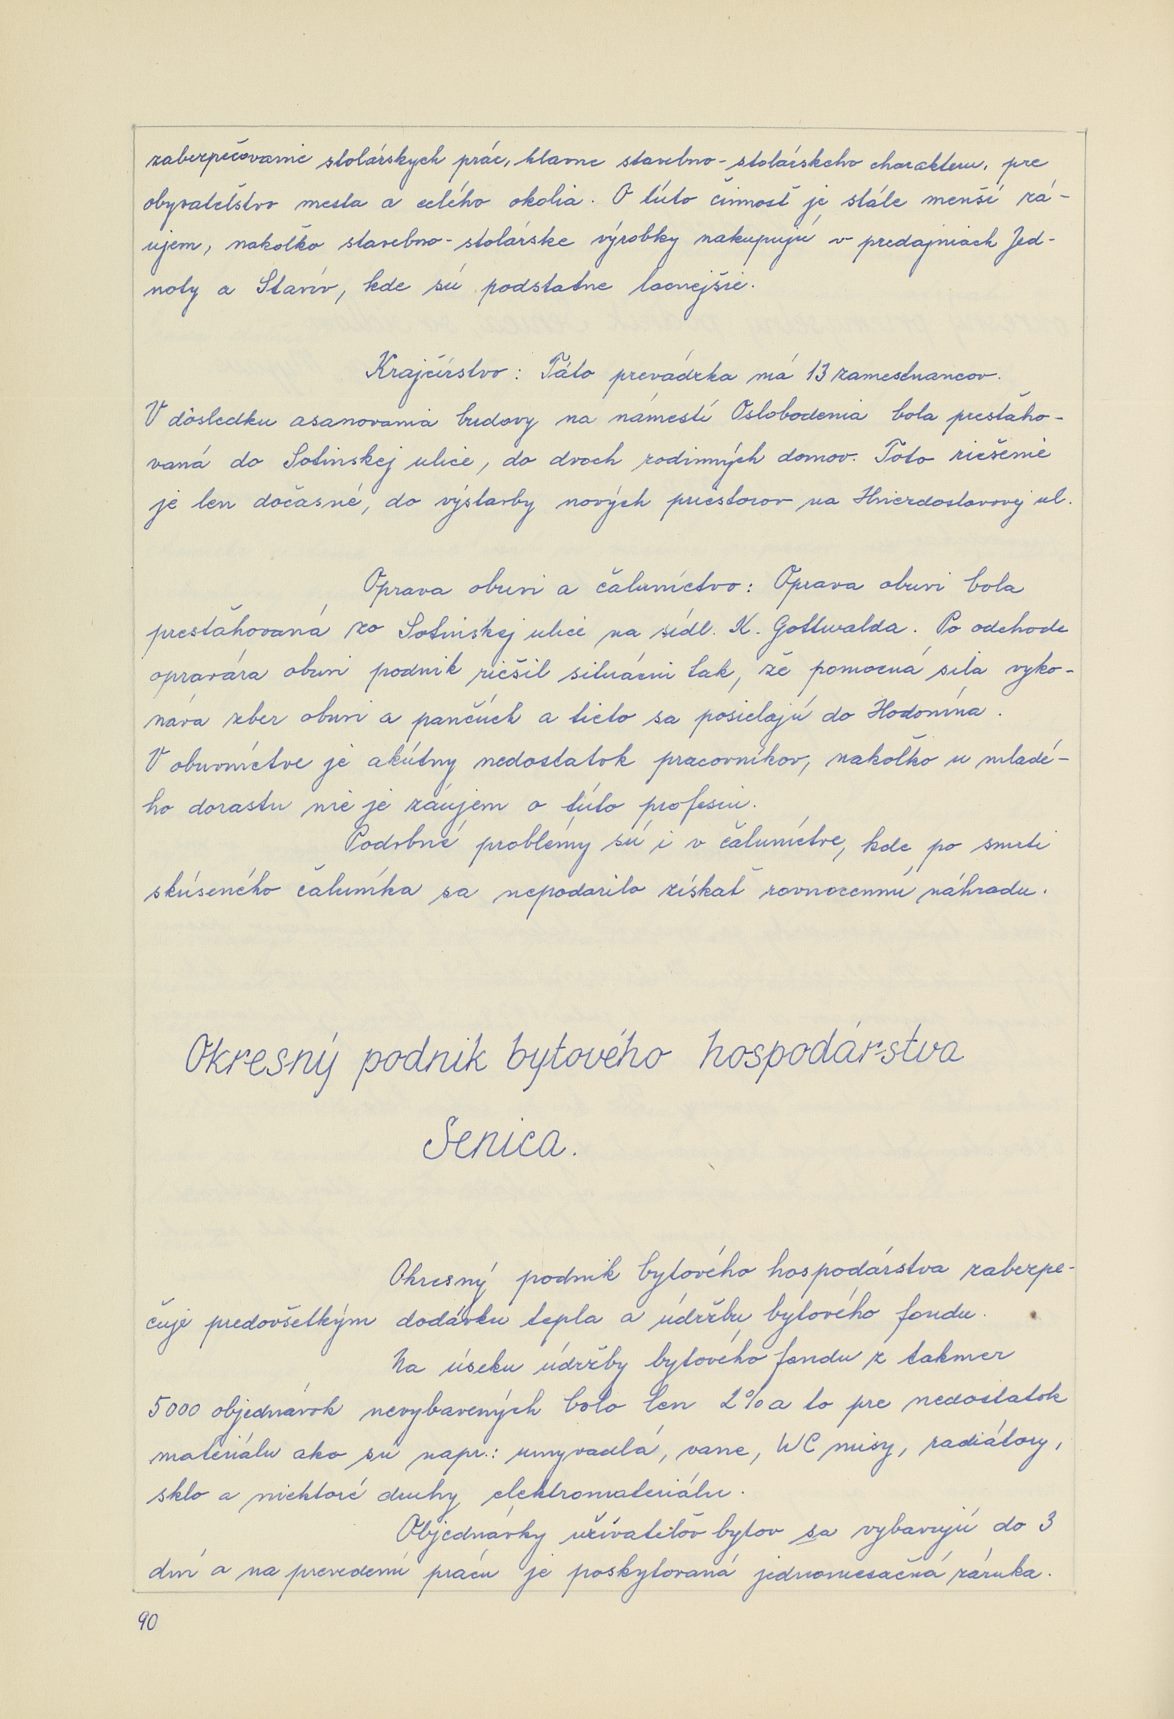 zabezpečovanie stolárskych prác, hlavne stavebno-stolárskeho charakteru, pre
obyvateľstvo mesta a celého okolia. O túto činnosť je stále menší zá-
ujem, nakoľko stavebno-stolárske výrobky nakupujú v predajniach Jed-
noty a Stavív, kde sú podstatne lacnejšie.
Krajčírstvo: Táto prevádzka má 13 zamestnancov.
V dôsledku asanovania budovy na námestí Oslobodenia bola presťaho-
vaná do Sotinskej ulice, do dvoch rodinných domov. Toto riešenie
je len dočasné, do výstavby nových priestorov na Hviezdoslavovej ul.
Oprava obuvi a čalunníctvo: Oprava obuvi bola
presťahovaná zo Sotinskej ulice na sídl. K. Gottwalda. Po odchode
opravára obuvi podnik riešil situáciu tak, že pomocná sila vyko-
náva zber obuvi a pančúch a tieto sa posielajú do Hodonína.
V obuvníctve je akútny nedostatok pracovníkov, nakoľko u mladé-
ho dorastu nie je záujem o túto profesiu.
Podobné problémy sú i v čaluníctve, kde po smrti
skúseného čaluníka sa nepodarilo získať rovnocennú náhradu.
Okresný podnik bytového hospodárstva
Senica.
Okresný podnik bytového hospodárstva zabezpe-
čuje predovšetkým dodávku tepla a údržbu bytového fondu.
Na úseku údržby bytového fondu z takmer
5000 objednávok nevybavených bolo len 2% a to pre nedostatok
materiálu ako sú napr.: umyvadlá, vane, WC misy, radiátory,
sklo a niektoré druhy elektromateriálu.
Objednávky užívateľov bytov sa vybavujú do 3
dní a na prevedenú prácu je poskytovaná jednomesačná záruka.
90